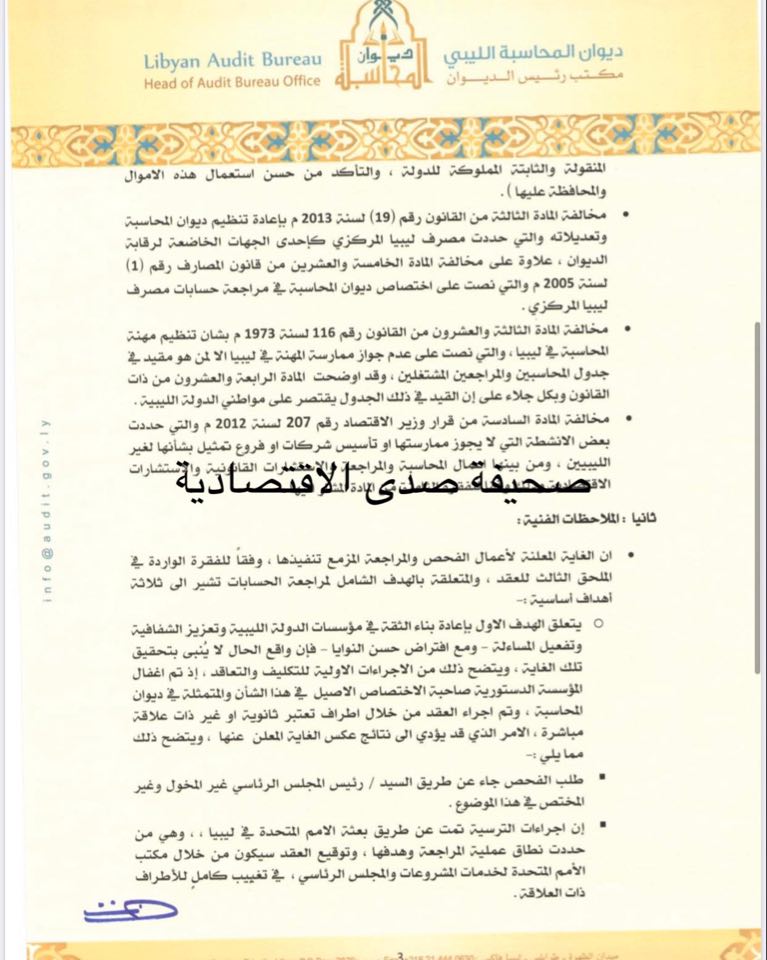 Libyan Audit Bureau
Head of Audit Bureau Office
ديوان المحاسبة
ديوان المحاسبة الليبي
مكتب رئيس الديوان
المنقولة والثابتة المملوكة للدولة ، والتأكد من حسن استعمال هذه الاموال
والمحافظة عليها ) .
• مخالفة المادة الثالثة من القانون رقم (19) لسنة 2013 م بإعادة تنظيم ديوان المحاسبة
وتعديلاته والتي حددت مصرف ليبيا المركزي كإحدى الجهات الخاضعة لرقابة
الديوان ، علاوة على مخالفة المادة الخامسة والعشرين من قانون المصارف رقم (1)
لسنة 2005 م والتي نصت على اختصاص ديوان المحاسبة في مراجعة حسابات مصرف
ليبيا المركزي .
• مخالفة المادة الثالثة والعشرون من القانون رقم 116 لسنة 1973 م بشان تنظيم مهنة
المحاسبة في ليبيا ، والتي نصت على عدم جواز ممارسة المهنة في ليبيا الا لمن هو مقيد في
جدول المحاسبين والمراجعين المشتغلين ، وقد اوضحت المادة الرابعة والعشرون من ذات
القانون وبكل جلاء على إن القيد في ذلك الجدول يقتصر على مواطني الدولة الليبية .
• مخالفة المادة السادسة من قرار وزير الاقتصاد رقم 207 لسنة 2012 م والتي حددت
بعض الانشطة التي لا يجوز ممارستها او تأسيس شركات او فروع تمثيل بشأنها لغير
الليبيين ، ومن بينها اعمال المحاسبة والمراجعة والاستشارات القانونية والاستشارات
صحيفة صدى الاقتصادية
ثانيا : الملاحظات الفنية :
• ان الغاية المعلنة لأعمال الفحص والمراجعة المزمع تنفيذها ، وفقاً للفقرة الواردة في
الملحق الثالث للعقد ، والمتعلقة بالهدف الشامل لمراجعة الحسابات تشير الى ثلاثة
أهداف أساسية :-
○ يتعلق الهدف الاول بإعادة بناء الثقة في مؤسسات الدولة الليبية وتعزيز الشفافية
وتفعيل المساءلة - ومع افتراض حسن النوايا - فإن واقع الحال لا يُنبى بتحقيق
تلك الغاية ، ويتضح ذلك من الاجراءات الاولية للتكليف والتعاقد ، إذ تم اغفال
المؤسسة الدستورية صاحبة الاختصاص الاصيل في هذا الشأن والمتمثلة في ديوان
المحاسبة ، وتم اجراء العقد من خلال اطراف تعتبر ثانوية او غير ذات علاقة
مباشرة ، الامر الذي قد يؤدي الى نتائج عكس الغاية المعلن عنها ، ويتضح ذلك
مما يلي :-
▪ طلب الفحص جاء عن طريق السيد / رئيس المجلس الرئاسي غير المخول وغير
المختص في هذا الموضوع .
▪ إن اجراءات الترسية تمت عن طريق بعثة الامم المتحدة في ليبيا ، ، وهي من
حددت نطاق عملية المراجعة وهدفها ، وتوقيع العقد سيكون من خلال مكتب
الأمم المتحدة لخدمات المشروعات والمجلس الرئاسي ، في تغييب كاملٍ للأطراف
ذات العلاقة .
info@audit.gov.ly
3